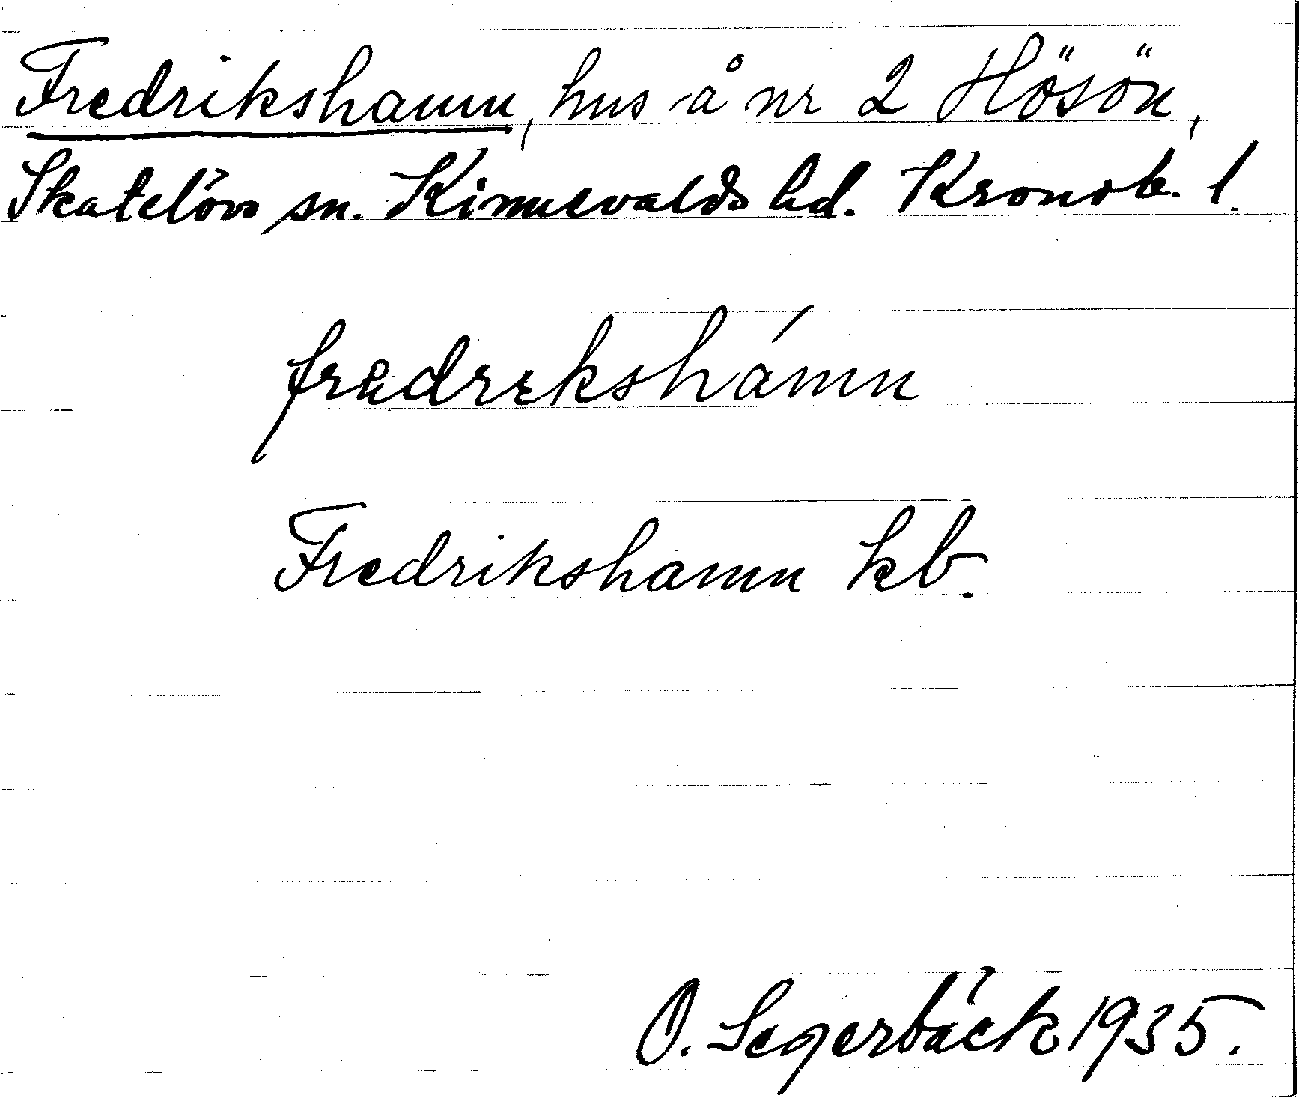 Fredrikshamn, hus å nr 2 Hösön,
Skatelövs sn. Kinnevalds hd. Kronob. l.
frædrekshámn
Fredrikshamn kb.
O. Segerbäck 1935.